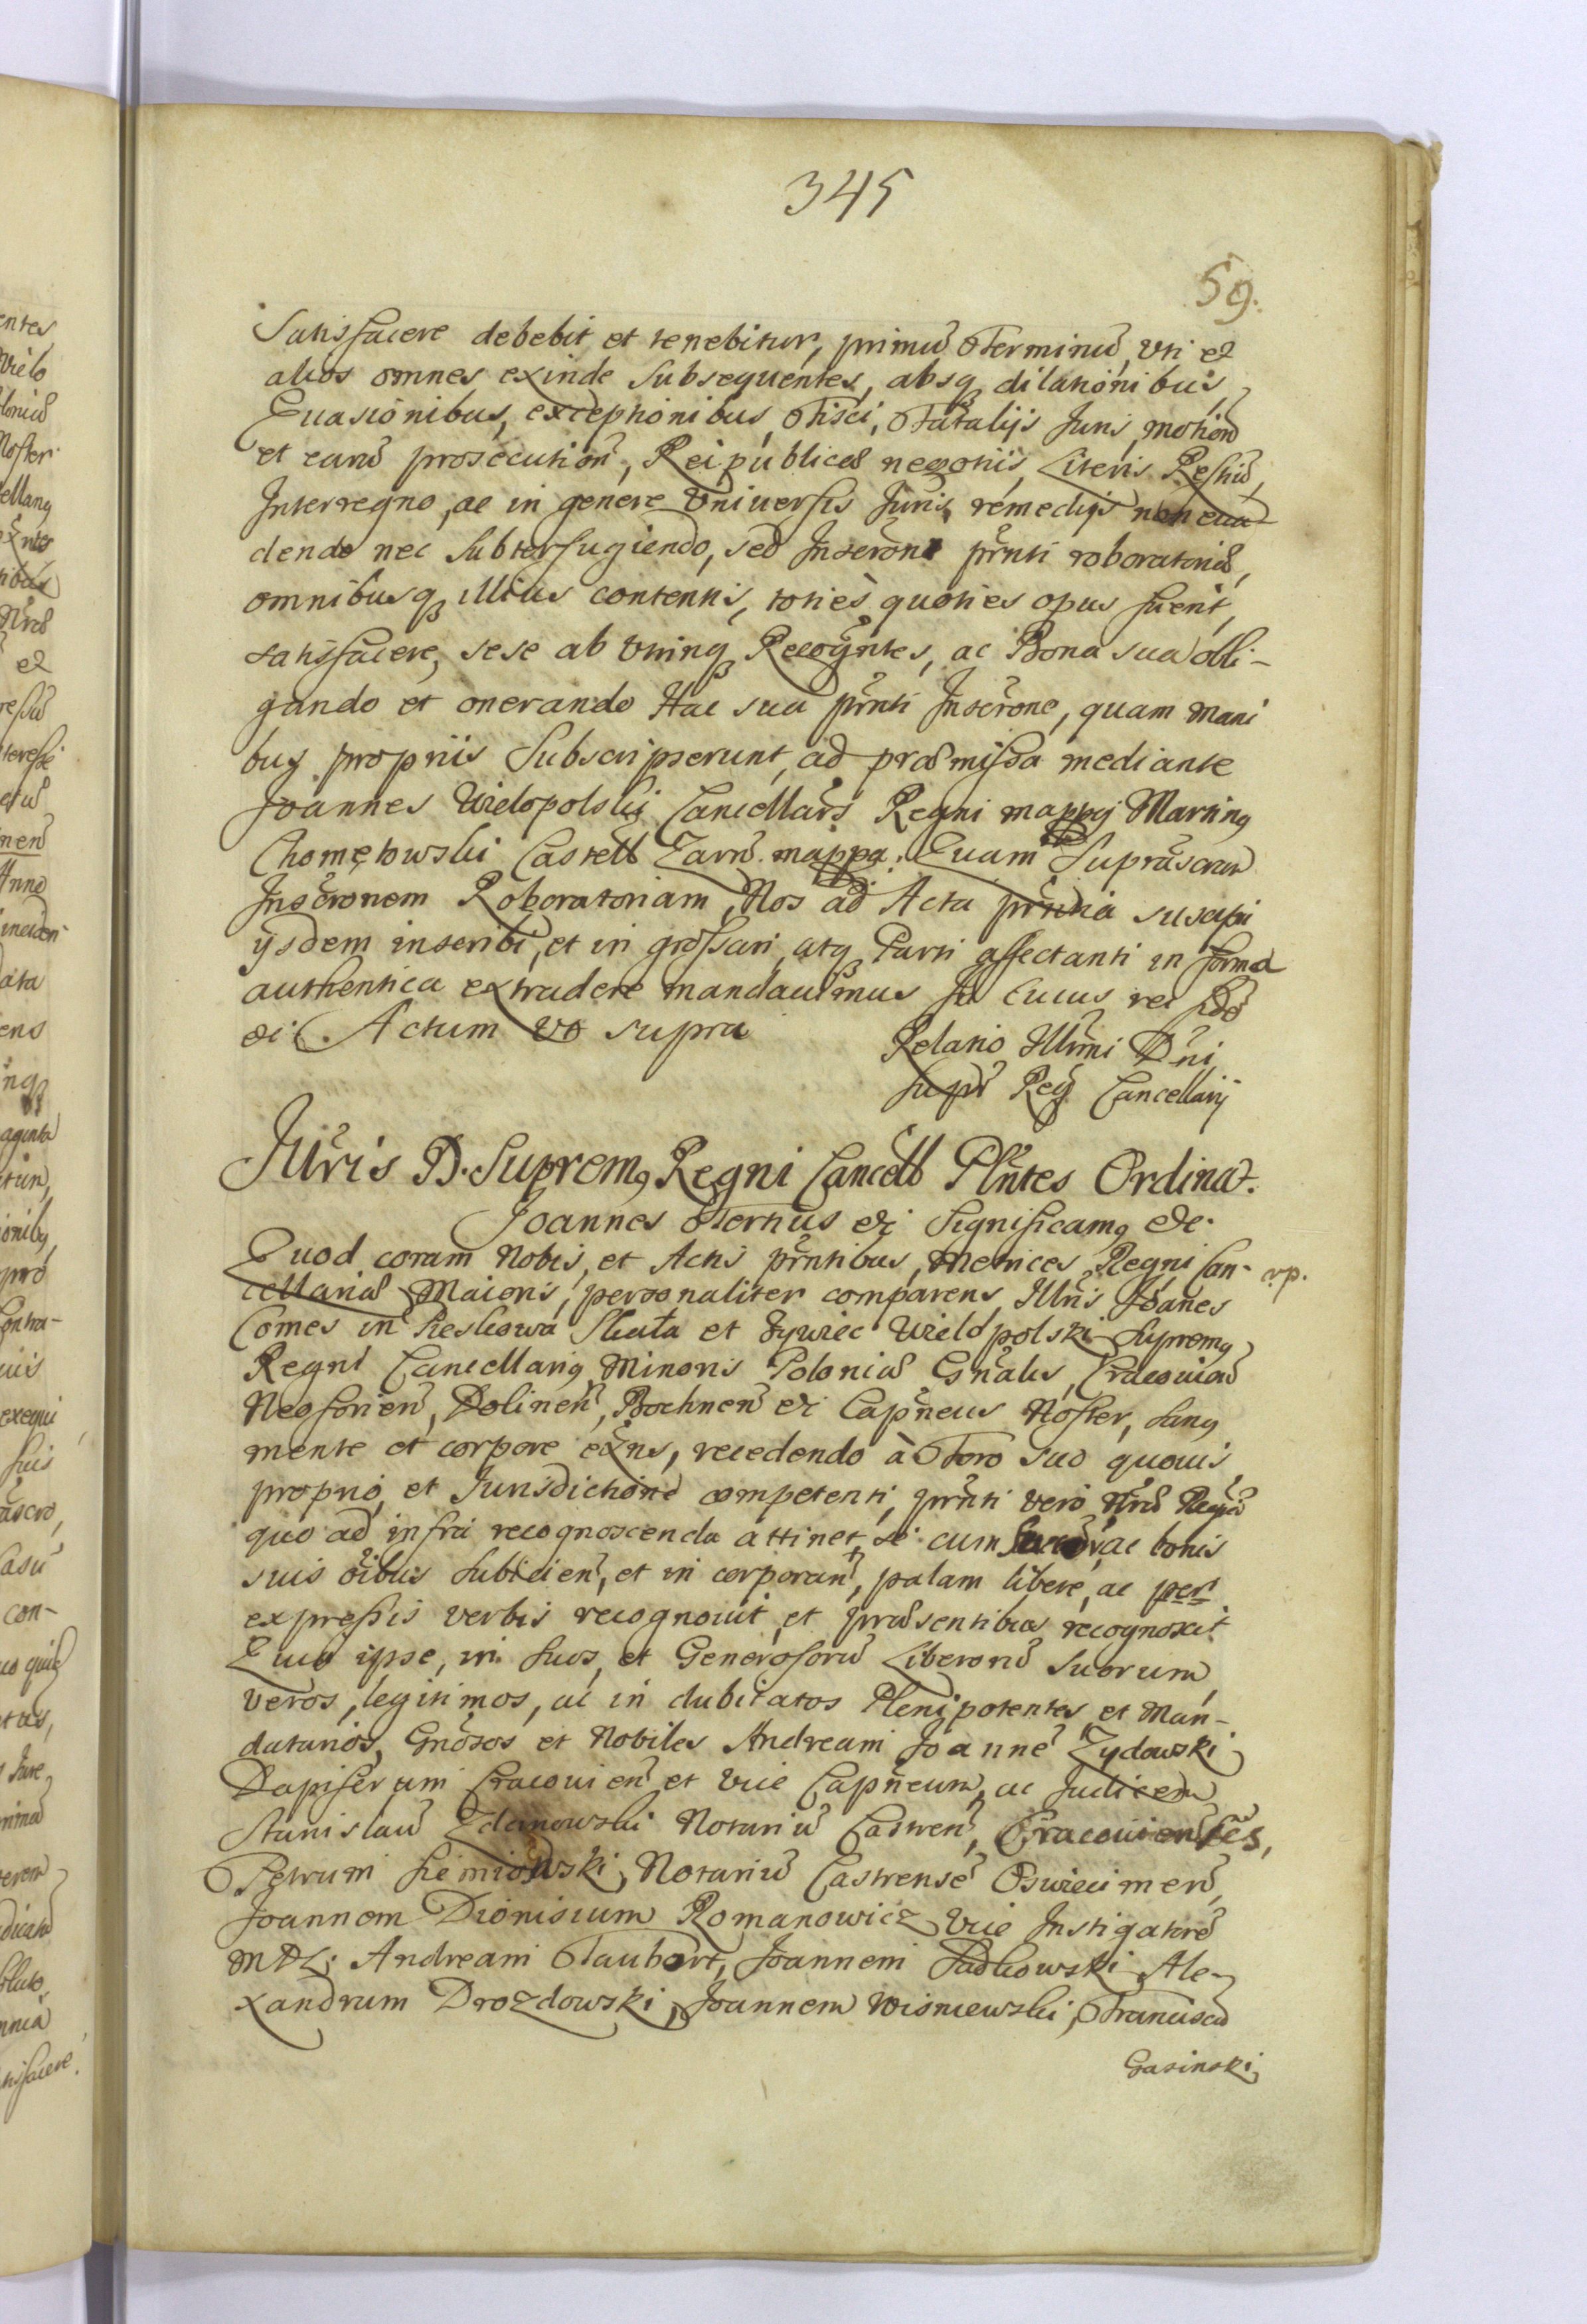 345
59.
Satisfacere debebit et tenebitur, primū Terminū, uti et
alios omnes exinde subsequentes, absq dilationibus,
Euasionibus, exceptionibus, Fisci, Fatalijs Juris, motionū
et earū prosecutionū, Rei publicæ negotiis, Literis Restiū,
Interregno, ac in genere Vniuersis Juris remedijs non eua
dendo nec subterfugiendo, sed Inscrōni pr̃nti roboratoriæ,
omnibusq illius contentis, toties quoties opus fuerit,
satisfacere, sese ab utrinq Recogñtes, ac Bona sua obli-
gando et onerando Hac sua pr̃nti Inscrōne, quam Mani
bus propriis Subscripserunt, ad præmissa mediante
Joannes Wielopolski Cancellarš Regni mappij Marting
Chomętowski Castell Zarn. mappa. Quam Suprascrw
Inscrōnem Roboratoriam, Nos ad Acta pr̃ntia suscipi
ijsdem inscribi, et in grossari, atq Parti affectanti in forma
authentica extradere mandauimus In Cuius rei fidē
ei. Actum ut supra
Relatio Illr̃mi Dñi
Supr̃ Reg Cancellarij
Juris D. Supremg Regni Cancell Plñtes Ordinat.
Joannes Tertius ei Significamg ei.
Quod coram Nobis, et Actis pr̃ntibus, Metrices Regni Can-
rp.
cellariæ Maioris, personaliter comparens Illr̃is Joanes
Comes in Pieskowa Skała et Zywiec Wielopolski Supremg
Regni Cancellarig Minoris Poloniæ Gñalis, Cracouień
Neoforień, Dolineń, Bochneń ei Capñeus Noster, sang
mente et corpore exñs, recedendo à Foro suo quouis
proprio, et Jurisdictione competenti, pr̃nti vero Nr̃æ Regiæ
quo ad infra recognoscenda attinet, se cum ac bonis
suis õibus subiicień, et in corporań, palam libere, ac per
expressis verbis recognouit, et præsentibus recognoscit
Quia ipse, in suos, et Generosorū Liberorū suorum
veros, legitimos, ac in dubitatos Plenipotentes et Man-
datarios, Gñosos et Nobiles Andream Joannē Zydowski
Dapiferum Cracouień et Vice Capñeum, ac Judicem
Stanislaū Zdanowski Notariū Castreń, Cracouiensēs,
Petrum Siemiowski, Notariū Castrensē Oswiecimeń,
Joannem Dionisium Romanowicz Vice Instigatorē
MDL: Andream Taubert, Joannem Sadkowski Ale-
xandrum Drozdowski, Joannem Wisniewski, Franciscū
Gasinski,